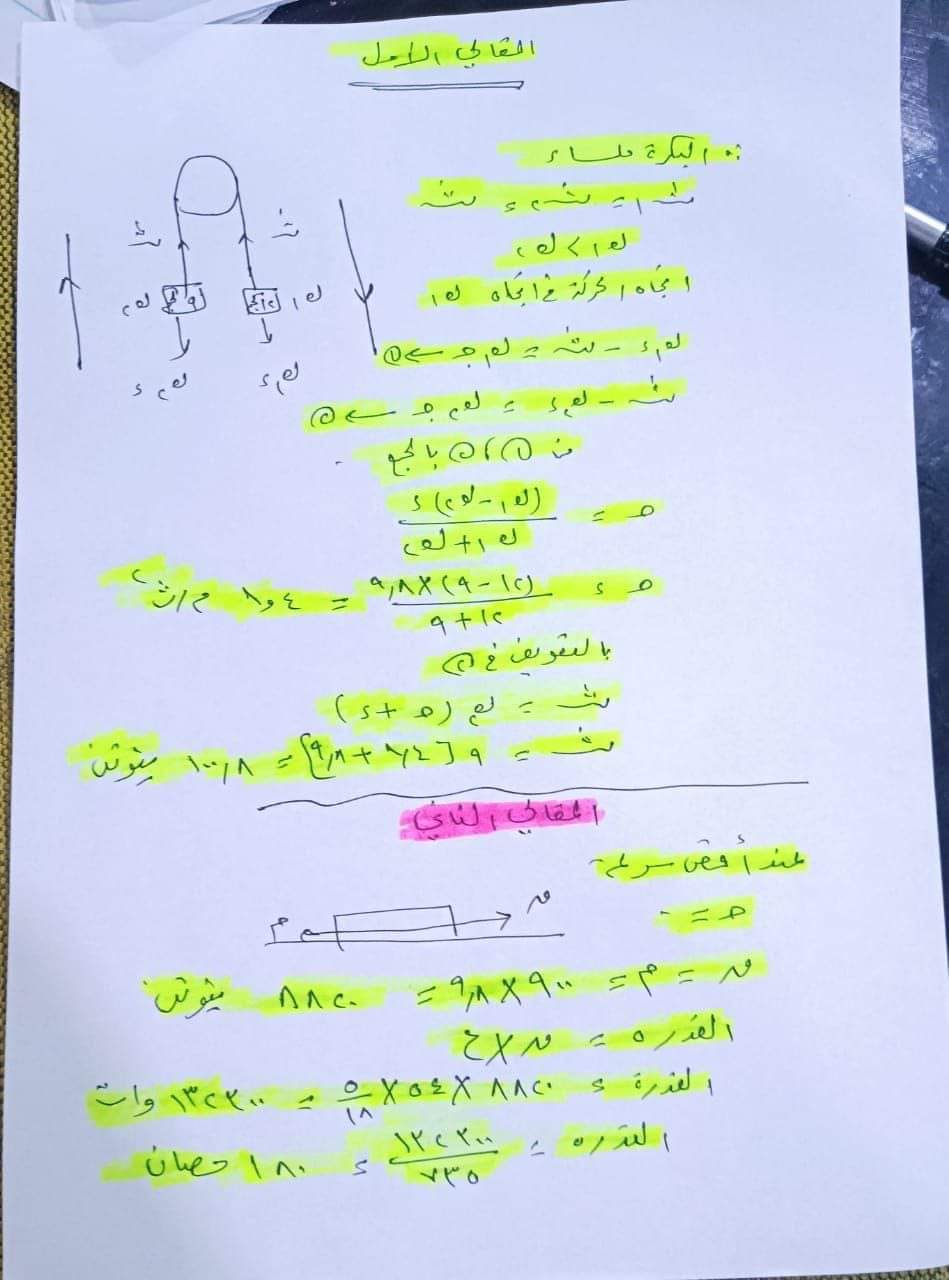 المقالي الاول
∵ البكرة ملساء
ش١ = ش٢ = ش
ك١ > ك٢
اتجاه الحركة في اتجاه ك١
ك١ء - ش = ك١ جـ ← ①
ش - ك٢ء = ك٢ جـ ← ②
من ① ، ② بالجمع
جـ = (ك١ - ك٢) ء / ك١ + ك٢
جـ = (١٢ - ٩) × ٩,٨ / ١٢ + ٩ = ١,٤ م/ث٢
بالتعويض في ②
ش = ك٢ (جـ + ء)
ش = ٩ [١,٤ + ٩,٨] = ١٠٠,٨ نيوتن
ش ش
ك٢ ٩كجم ١٢كجم ك١
ك٢ء ك١ء
المقالي الثاني
عند أقصى سرعة
جـ = ٠
م ← → ق
ق = م = ٩٠٠ × ٩,٨ = ٨٨٢٠ نيوتن
القدره = ق × ع
القدرة = ٨٨٢٠ × ٥٤ × ٥/١٨ = ١٣٢٣٠٠ وات
القدره = ١٣٢٣٠٠ / ٧٣٥ = ١٨٠ حصان